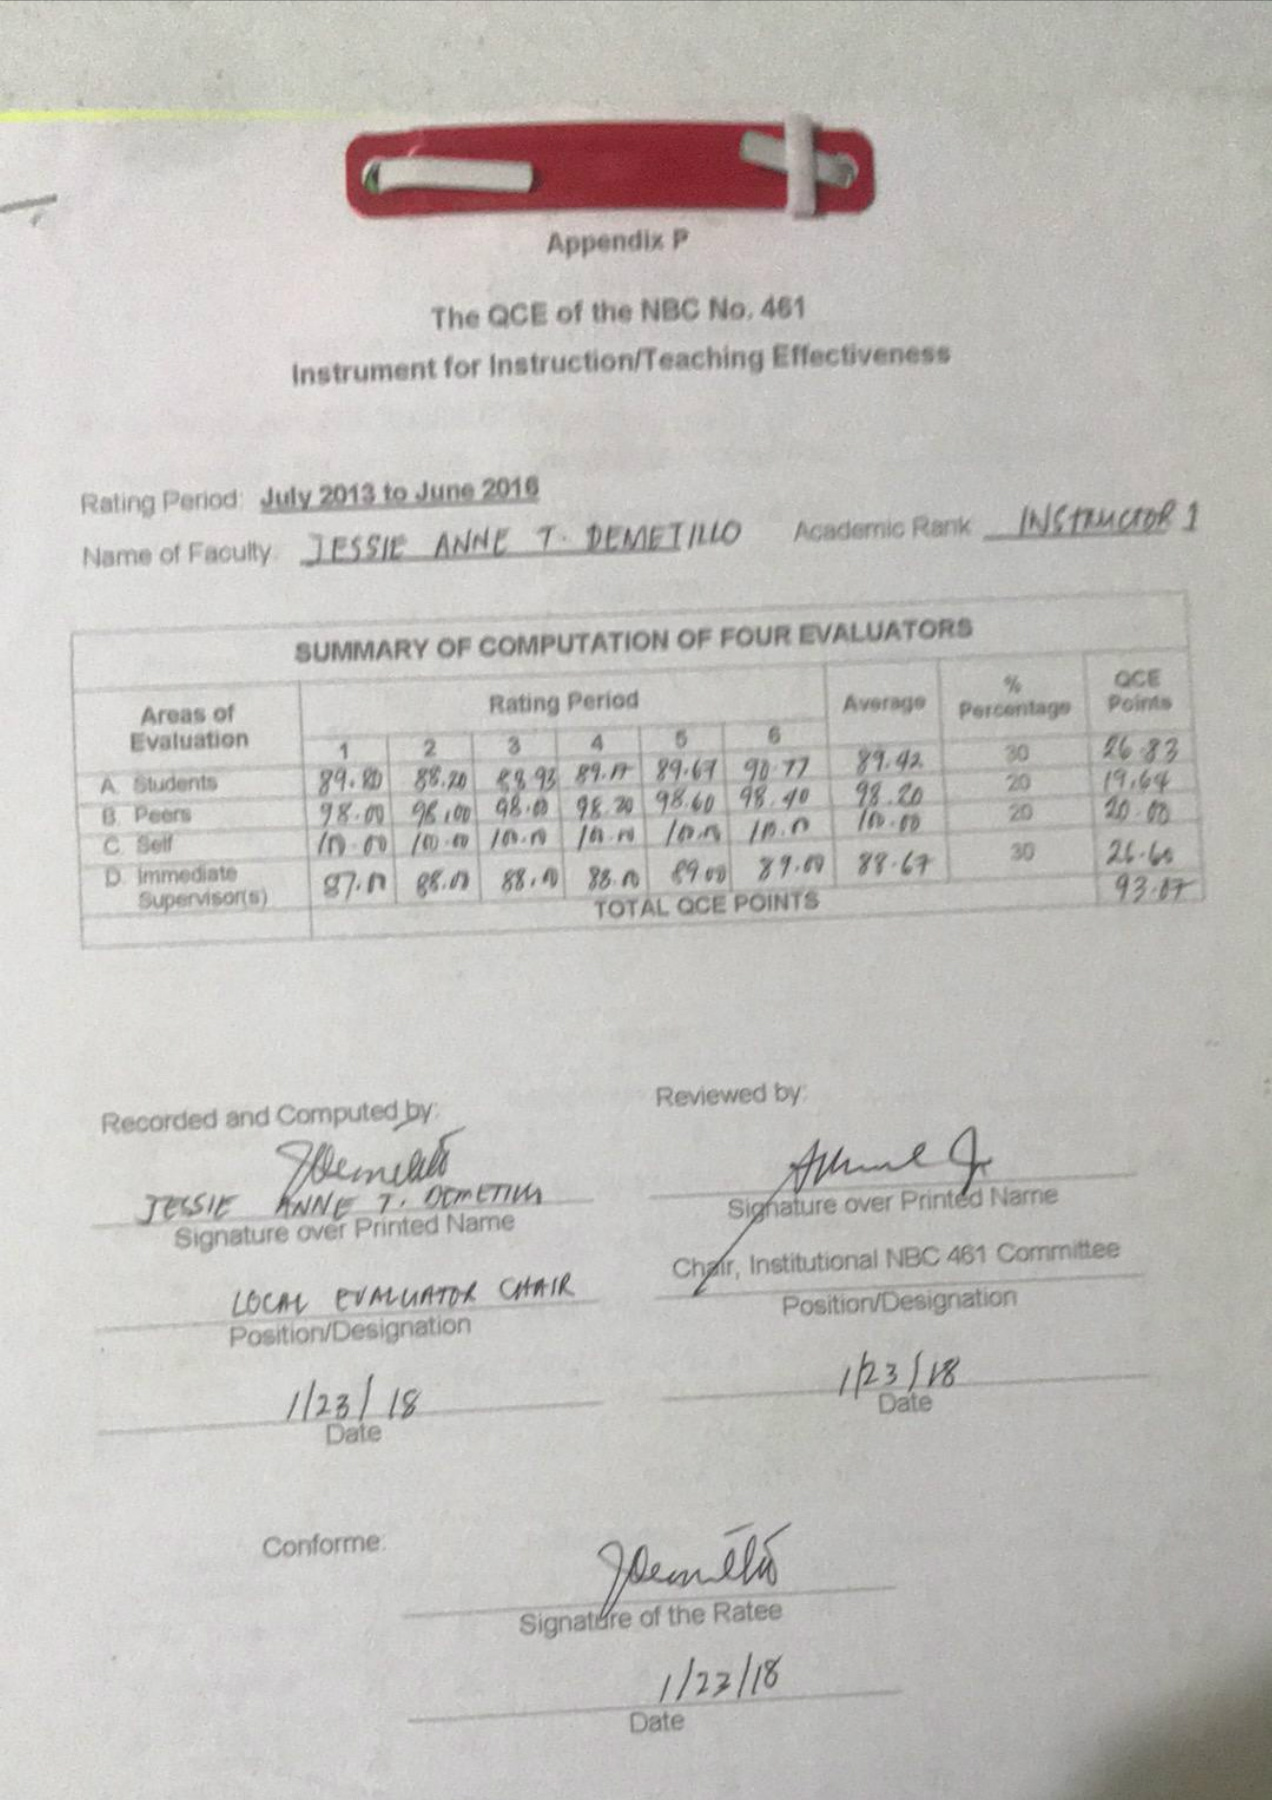 Appendix P
The QCE of the NBC No. 461
Instrument for Instruction/Teaching Effectiveness
Rating Period: July 2013 to June 2016
Name of Faculty: JESSIE ANNE T. DEMETILLO Academic Rank INSTRUCTOR 1
SUMMARY OF COMPUTATION OF FOUR EVALUATORS
Areas of Evaluation Rating Period Average % Percentage QCE Points
1 2 3 4 5 6
A. Students 89.80 88.20 88.93 89.17 89.67 90.77 89.42 30 26.83
B. Peers 98.00 98.00 98.00 98.20 98.60 98.40 98.20 20 19.64
C. Self 100.00 100.00 100.00 100.00 100.00 100.00 100.00 20 20.00
D. Immediate Supervisor(s) 87.00 88.00 88.00 88.00 89.00 89.00 88.67 30 26.60
TOTAL QCE POINTS 93.07
Recorded and Computed by: Reviewed by:
JESSIE ANNE T. DEMETILLO
Signature over Printed Name Signature over Printed Name
LOCAL EVALUATOR CHAIR Chair, Institutional NBC 461 Committee
Position/Designation Position/Designation
1/23/18 1/23/18
Date Date
Conforme:
Signature of the Ratee
1/23/18
Date